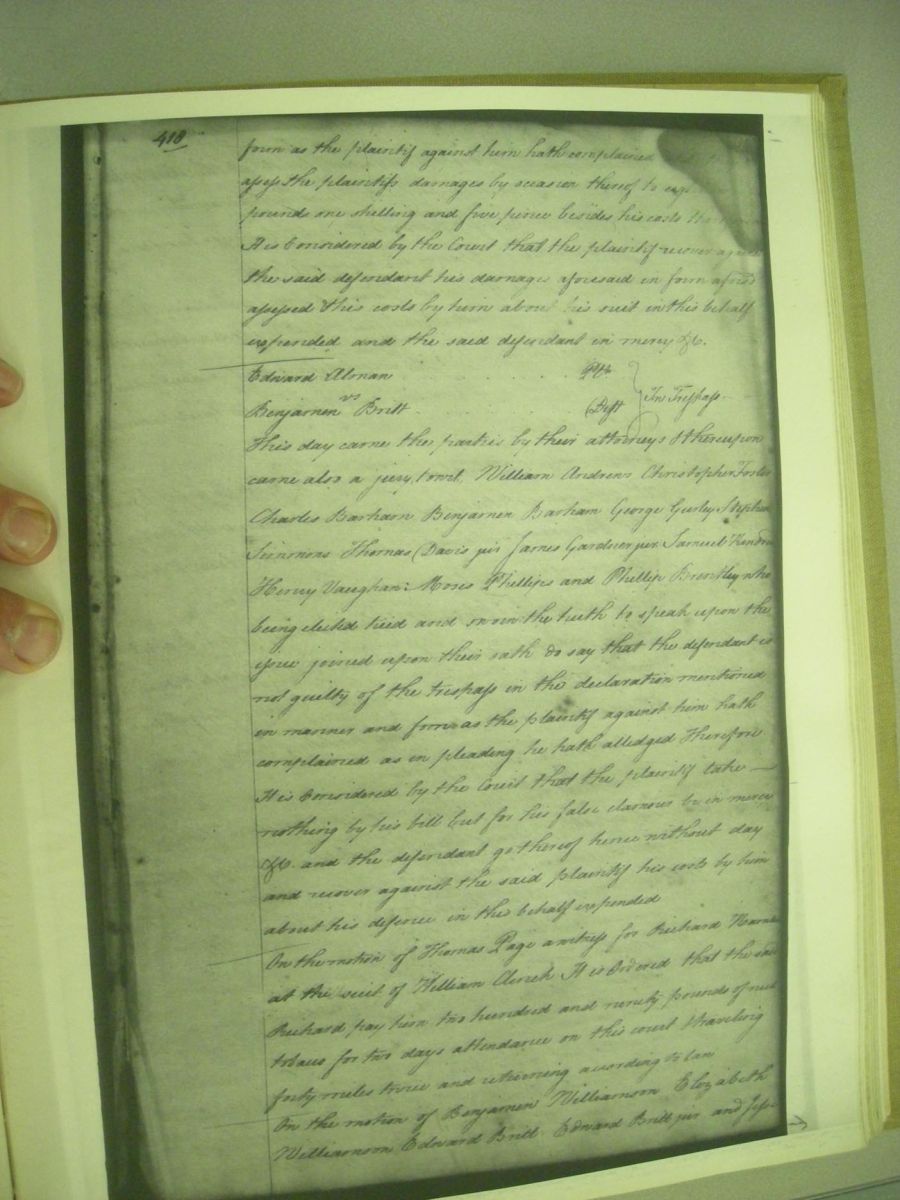 418
form as the plaintif against him hath complained
assess the plaintifs damages by occasion thereof to
pounds one shilling and five pence besides his costs
It is Considered by the Court that the plaintif recover against
the said defendant his damages aforesaid in form afores
assessed & his costs by him about his suit in this behalf
expended and the said defendant in mercy &c.
Edward Alman Pltf
vs In Trespass
Benjamen Britt Deft
This day came the parties by their attorneys & thereupon
came also a jury, towit, William Andrews Christopher Foster
Charles Barham Benjamen Barham George Gurley Stephen
Simmons Thomas Davis jur James Gardner jur Samuel Kindre
Henry Vaughan: Moses Phillips and Phillip Brantley who
being elected tried and sworn the truth to speak upon the
issue joined upon their oath do say that the defendant is
not guilty of the trespass in the declaration mentioned
in manner and form as the plaintif against him hath
complained as in pleading he hath alledged Therefore
It is Considered by the Court that the plaintif take
nothing by his bill but for his false clamour be in mercy
&c. and the defendant go thereof hence without day
and recover against the said plaintif his costs by him
about his defence in the behalf expended
On the motion of Thomas Page a witness for Richard
at the suit of William It is Ordered that the said
Richard pay him two hundred and ninety pounds of neat
tobaco for two days attendance on this court & traveling
forty miles twice and returning according to law
On the motion of Benjamen Williamson Elizabeth
Williamson Edward Britt Edward Britt jur and